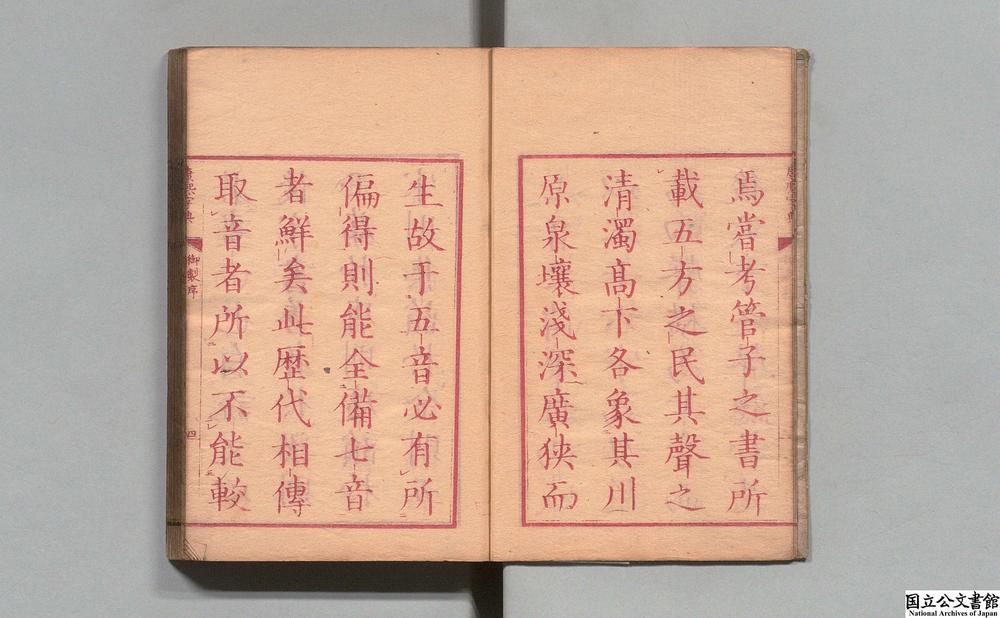 焉嘗考管子之書所
載五方之民其聲之
清濁髙下各象其川
原泉壤淺深廣狹而
生故于五音必有所
偏得則能全備七音
者鮮矣此歴代相傳
取音者所以不能較
御製序
四
国立公文書館
National Archives of Japan